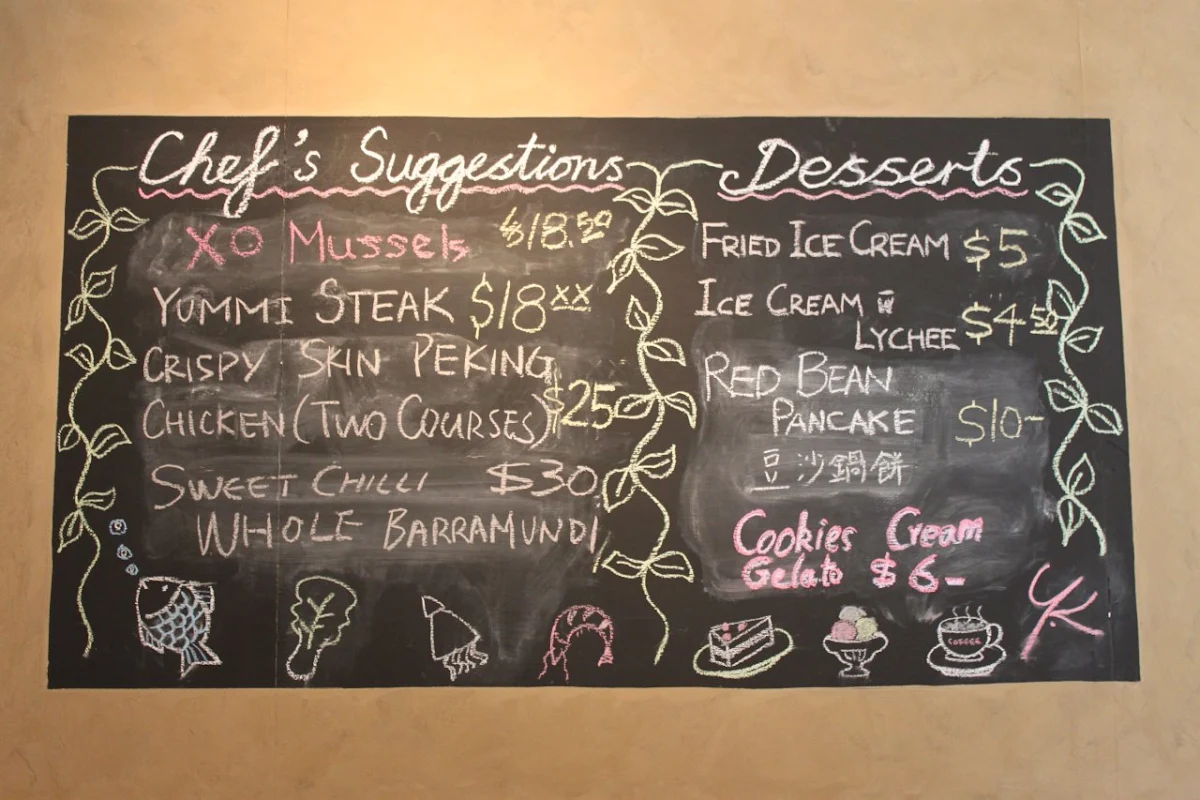 Chef's Suggestions
XO Mussels $18.50
YUMMI STEAK $18xx
CRISPY SKIN PEKING
CHICKEN (TWO COURSES) $25
SWEET CHILLI $30
WHOLE BARRAMUNDI
Desserts
FRIED ICE CREAM $5
ICE CREAM w
LYCHEE $4.50
RED BEAN
PANCAKE $10-
豆沙鍋餅
Cookies Cream
Gelato $6-
COFFEE
YK